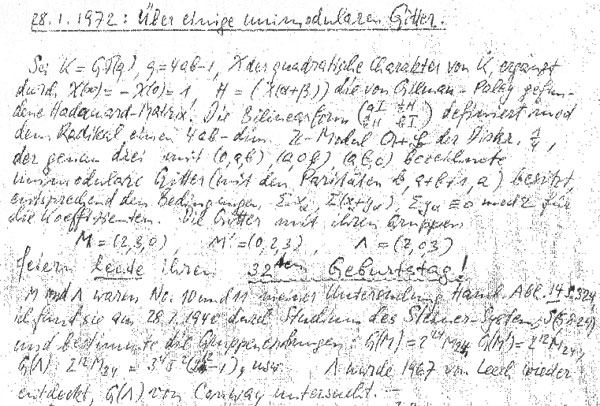 28.1.1972: Über einige unimodularen Gitter.
Sei K = GF(q), q=4ab-1, χ der quadratische Charakter von K, ergänzt
durch χ(∞) = -χ(0) = 1, H = (χ(α+β)) die von Gilman-Paley gefun-
dene Hadamard-Matrix. Die Bilinearform definiert mod
dem Radikal einen 4ab-dim. Z-Modul der Diskr.
der genau drei mit (0,a,b), (a,0,b), (a,b,0) bezeichnete
unimodulare Gitter (mit den Paritäten b, a+b+1, a) besitzt,
entsprechend den Bedingungen ≡ 0 mod 2 für
die Koeffizienten. Die Gitter mit ihren Gruppen
M = (2,3,0) M' = (0,2,3) Λ = (2,0,3)
feiern heute ihren 32ten Geburtstag!
M und Λ waren No. 10 und 11 meiner Untersuchung Hamb. Abh. 14 S.324,
ich fand sie am 28.1.1940 durch Studium des Steiner-Systems S(5,8,24)
und bestimmte die Gruppenordnungen: G(M) = 2^24 M24, G(M') = 2^12 M24,
G(Λ): 2^12 M24 = usw. Λ wurde 1967 von Leech wieder
entdeckt, G(Λ) von Conway untersucht. —